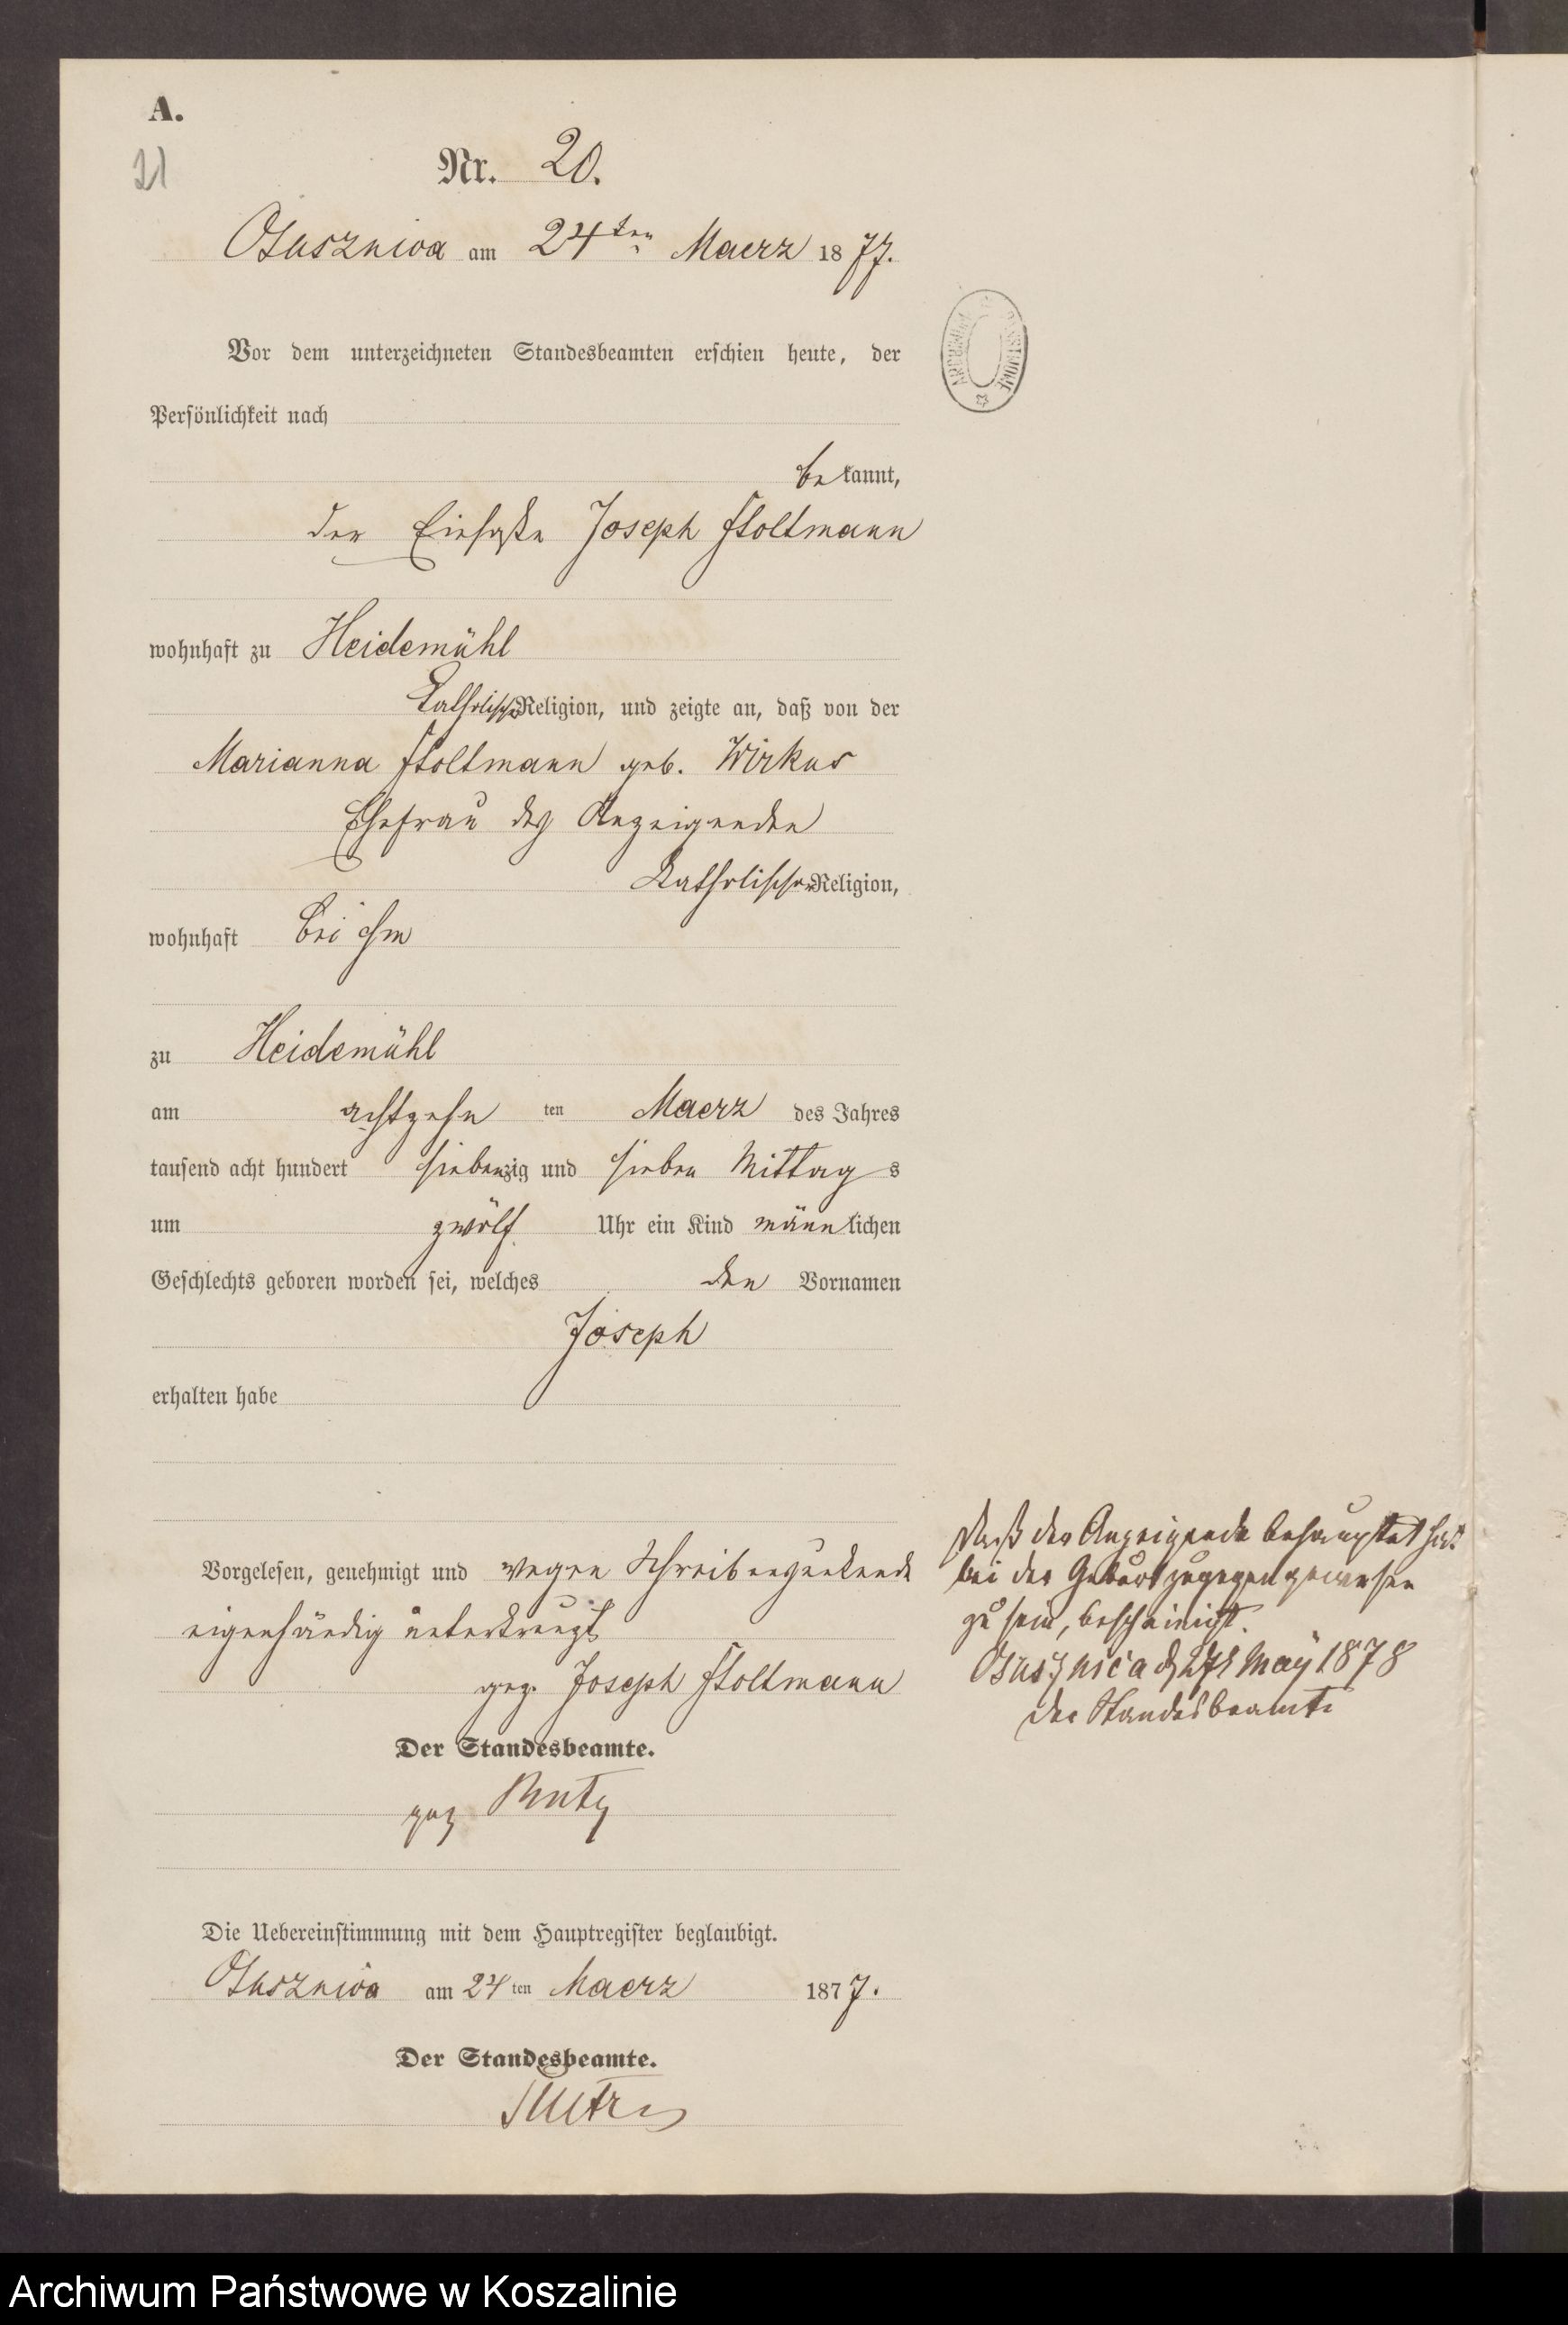 A.
21
Nr. 20.
Osusznica am 24ten Maerz 1877.
Vor dem unterzeichneten Standesbeamten erschien heute, der
Persönlichkeit nach
bekannt,
der Einsaße Joseph Stoltmann
wohnhaft zu Heidemühl
Katholischer Religion, und zeigte an, daß von der
Marianna Stoltmann geb. Wirkus
Ehefrau des Anzeigenden
Katholischer Religion,
wohnhaft bei ihm
zu Heidemühl
am achtzehn ten Maerz des Jahres
tausend acht hundert siebenzig und sieben Mittags
um zwölf Uhr ein Kind männlichen
Geschlechts geboren worden sei, welches den Vornamen
Joseph
erhalten habe
Vorgelesen, genehmigt und wegen Schreibensunkunde
eigenhändig unterkreuzt
gez. Joseph Stoltmann
Der Standesbeamte.
gez
Die Uebereinstimmung mit dem Hauptregister beglaubigt.
Osusznica am 24ten Maerz 1877.
Der Standesbeamte.
Daß der Anzeigende behauptet hat
bei der Geburt zugegen gewesen
zu sein, bescheinigt.
Osusznica d 27t May 1878
der Standesbeamte
Archiwum Państwowe w Koszalinie